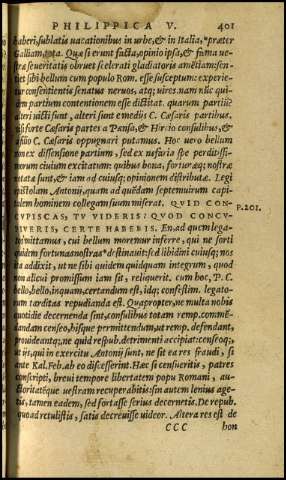 PHILIPPICA V. 401
haberi, sublatis vacationibus in urbe, & in Italia, *præter
Galliam, tota. Quæ si erunt facta, opinio ipsa, & fama ve-
stræ seueritatis obruet sceleratj gladiatoris amẽtiam: sen-
tiet sibi bellum cum populo Rom. esse susceptum: experie-
tur consentientis senatus neruos, atq; uires. nam nũc qui-
dem partium contentionem esse dictitat. quarum partiũ?
alteri uicti sunt, alteri sunt e medijs C. Cæsaris partibus.
nisi forte Cæsaris partes a Pansa, & Hirtio consulibus, &
filio C. Cæsaris oppugnari putamus. Hoc uero bellum
non ex dissensione partium, sed ex nefaria spe perditissi-
morum ciuium excitatum: quibus bona, fortunæq; nostræ
notatæ sunt, & iam ad cuiusq; opinionem distributæ. Legi
epistolam Antonij, quam ad quẽdam septenuirum capi
talem hominem collegam suum miserat. QVID CON-
CVPISCAS, TV VIDERIS: QVOD CONCV-
PIVERIS, CERTE HABEBIS. En, ad quem lega-
tos mittamus, cui bellum moremur inferre, qui ne sorti
quidem fortunas nostras* destinauit: sed libidini cuiusq; nos
ita addixit, ut ne sibi quidem quidquam integrum, quod
non alicui promissum iam sit, reliquerit. cum hoc, P. C.
bello, bello, inquam, certandum est, idq; confestim. legato-
rum tarditas repudianda est. Quapropter, ne multa nobis
quotidie decernenda sint, consulibus totam remp. commẽ-
dandam censeo, hisque permittendum, ut remp. defendant,
prouideantq; ne quid respub. detrimenti accipiat: censeoq;,
ut iis, qui in exercitu Antonij sunt, ne sit ea res fraudi, si
ante Kal. Feb. ab eo discesserint. Hæc si censueritis, patres
conscripti, breui tempore libertatem populi Romani, au-
ctoritatẽque uestram recuperabitis. sin autem lenius age-
tis, tamen eadem, sed fortasse serius decernetis. De repub.
quoad retulistis, satis decreuisse uideor. Altera res est de
CCC hon
P.201.